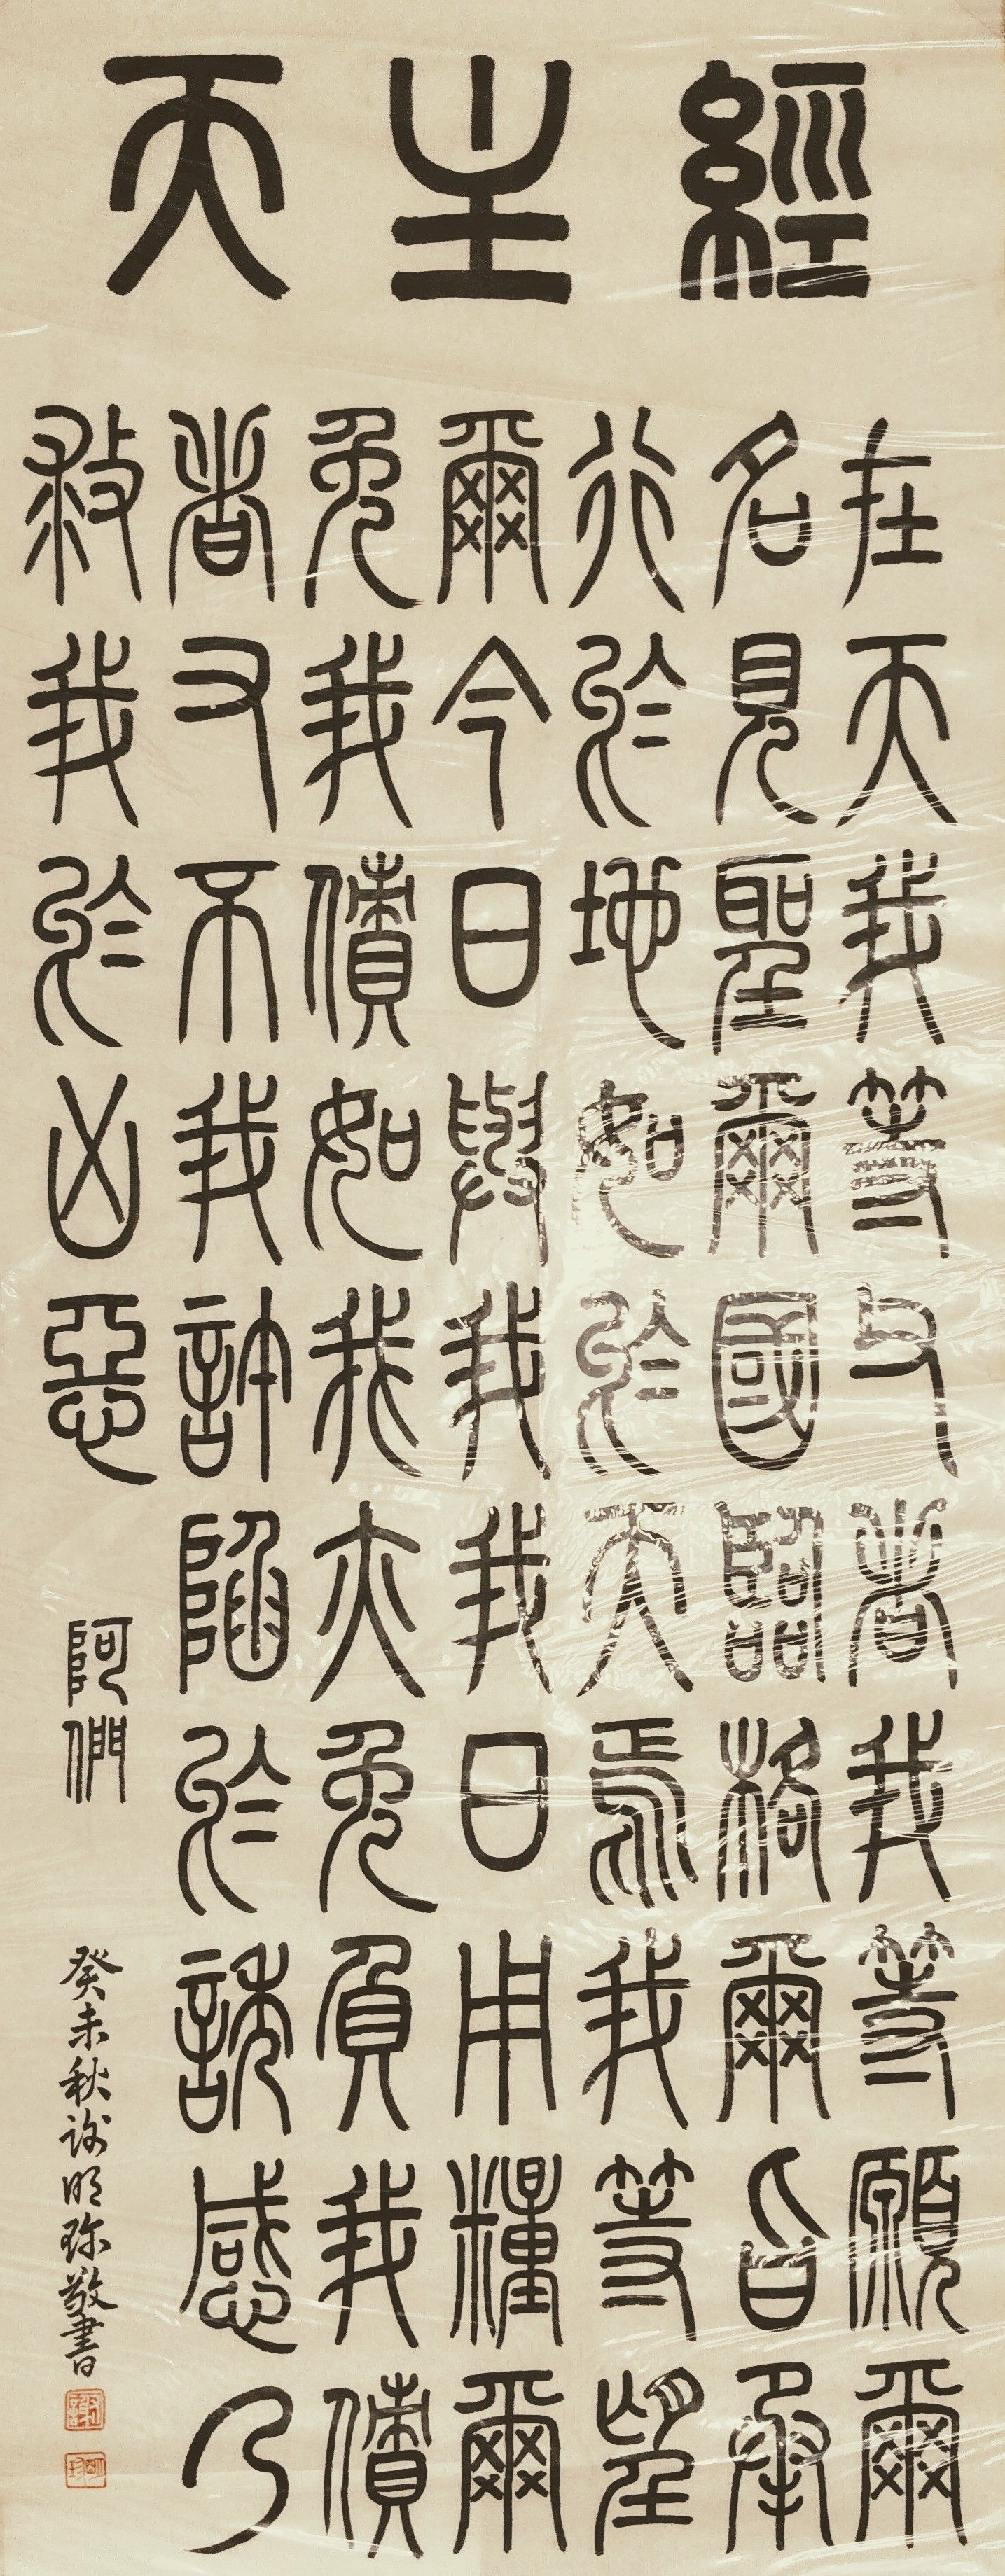 天主經
在天我等父者我等願爾
名見聖爾國臨格爾旨承
行於地如於天焉我等望
爾今日與我我日用糧爾
免我債如我亦免負我債
者又不我許陷於誘感乃
救我於凶惡
阿們
癸未秋謝明珍敬書
謝